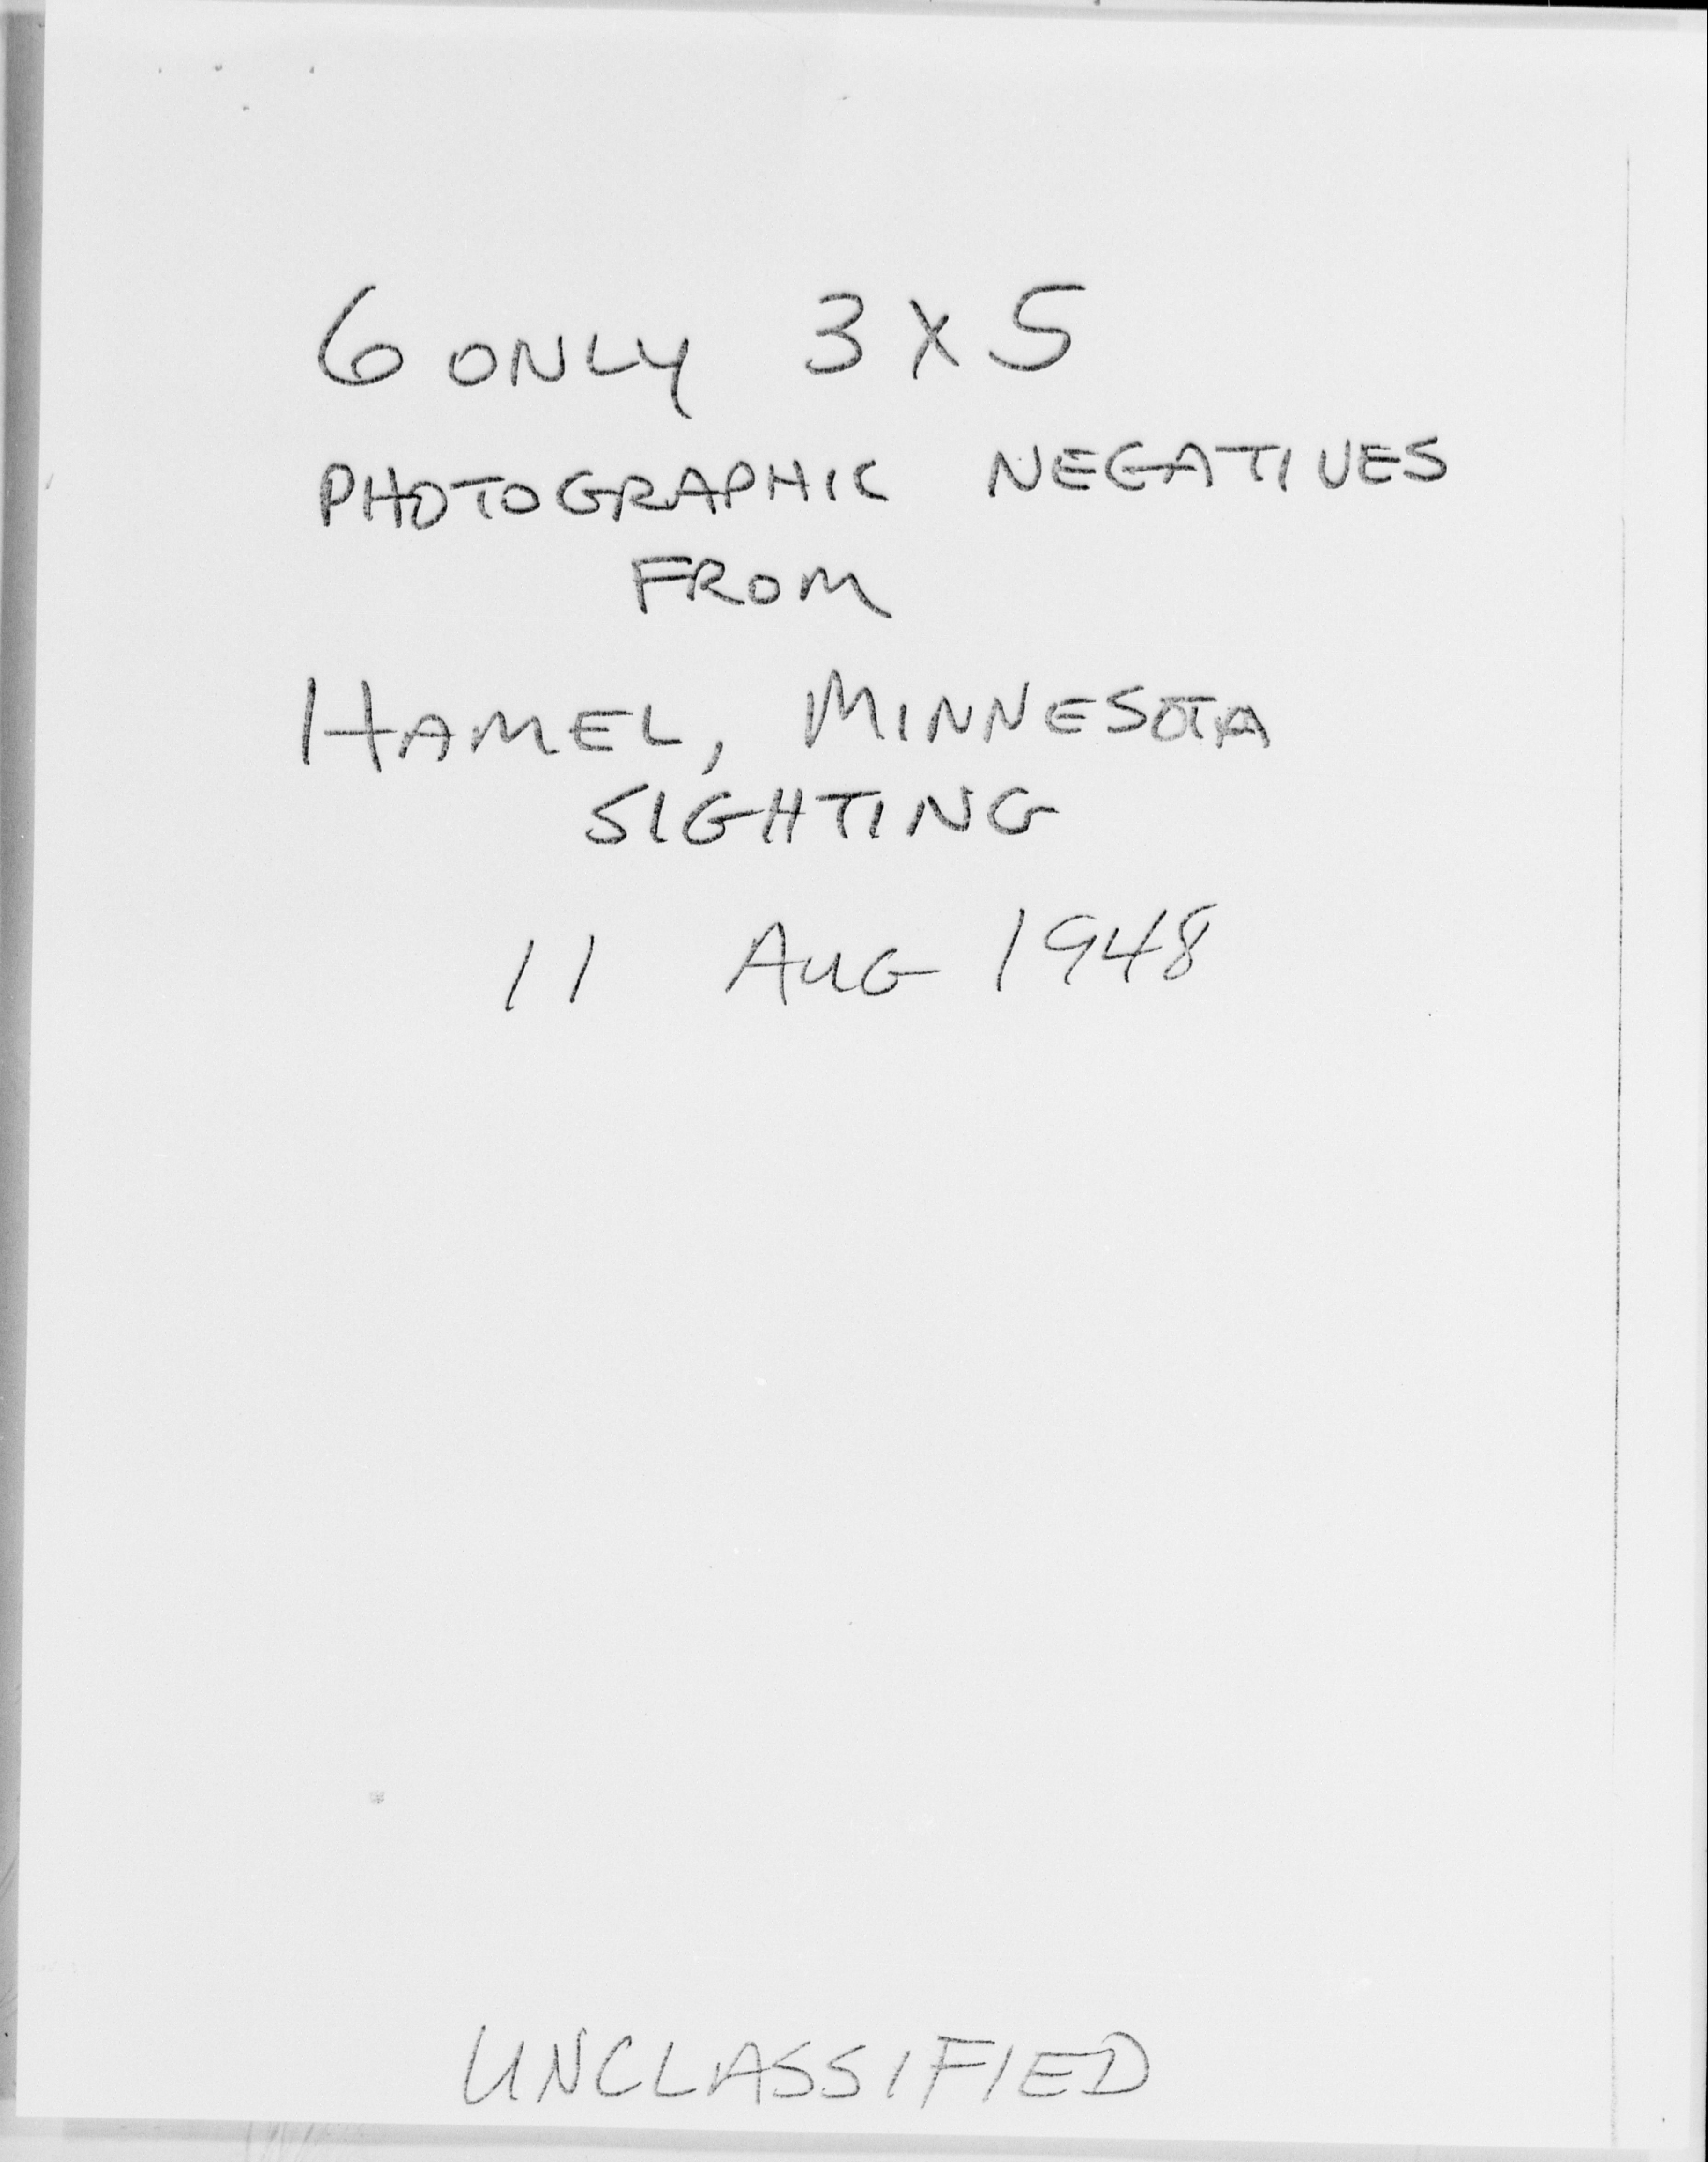 6 ONLY 3 X 5
PHOTOGRAPHIC NEGATIVES
FROM
HAMEL, MINNESOTA
SIGHTING
11 AUG 1948
UNCLASSIFIED